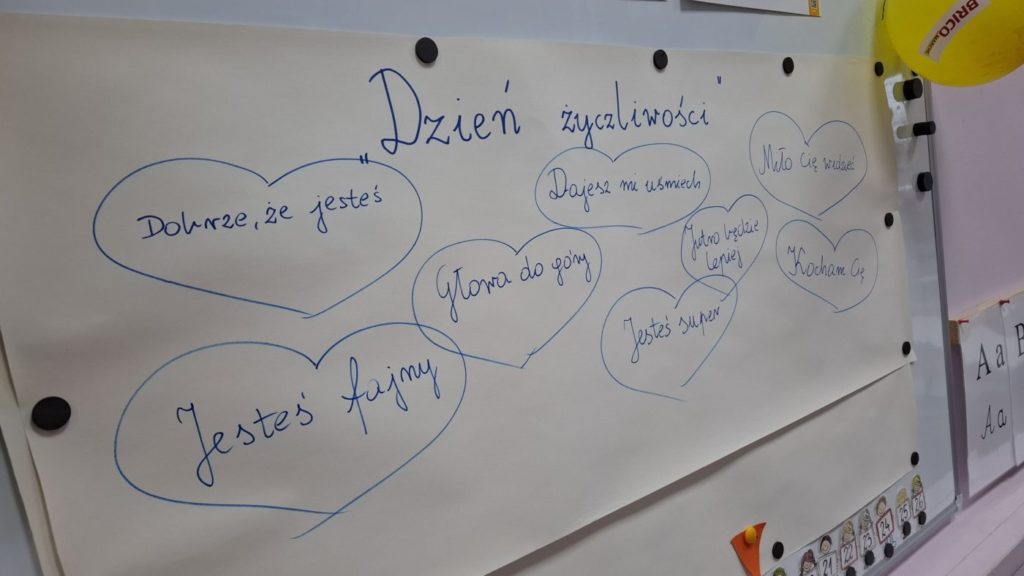 "Dzień życzliwości"
Dobrze, że jesteś
Dajesz mi uśmiech
Miło Cię widzieć
Głowa do góry
Jutro będzie
lepiej
Kocham Cię
Jesteś fajny
Jesteś super
BRICO
A a
A a
B
21
22
23
24
25
26